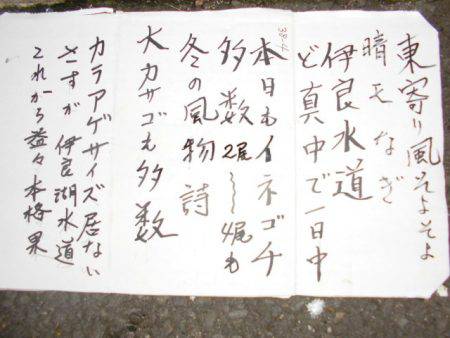 東寄り風そよそよ
晴天なぎ
伊良水道
ど真中で一日中
38-4
本日もイネゴチ
多数2尾〜4尾も
冬の風物詩
大カサゴも多数
カラアゲサイズ居ない
さすが 伊良湖水道
これから益々本格